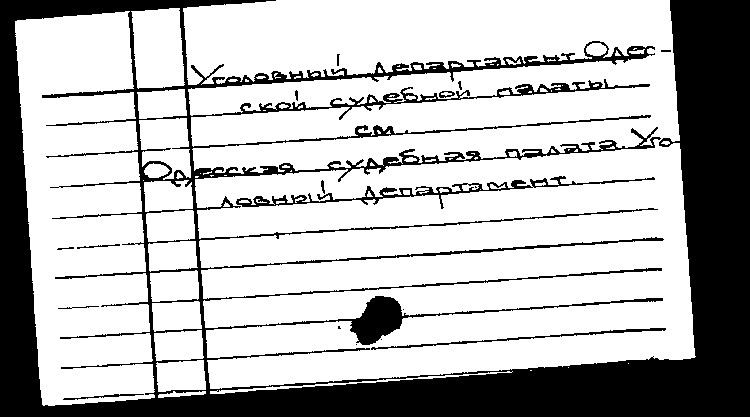 Уголовный департамент Одес-
ской судебной палаты
см.
Одесская судебная палата. Уго-
ловный департамент.